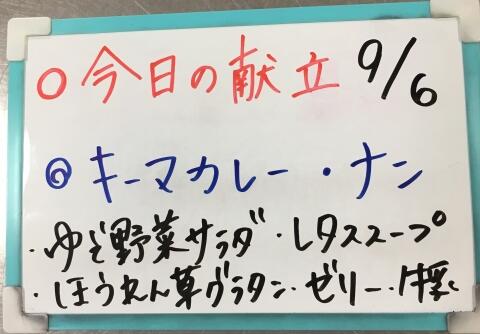 ○今日の献立 9/6
◎キーマカレー・ナン
・ゆで野菜サラダ・レタススープ
・ほうれん草グラタン・ゼリー・牛乳